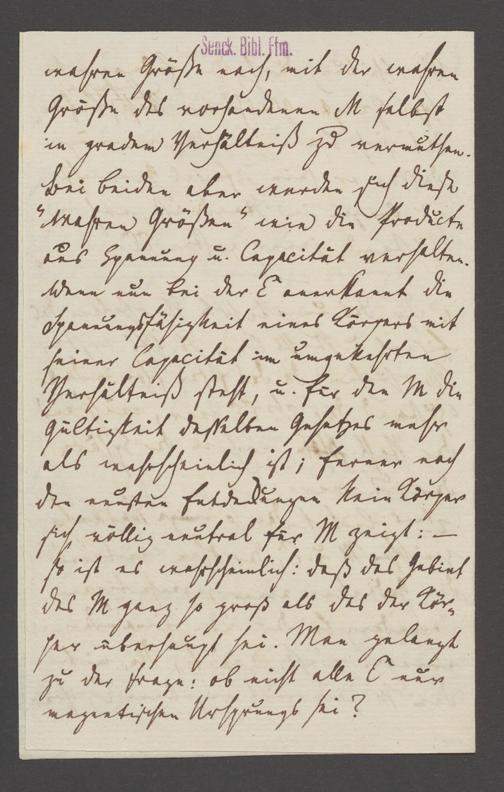 Senck. Bibl. Ffm.
wahren Größe nach, mit der wahren
Größe des vorhandenen M selbst
in gradem Verhältniß zu vermuthen.
Bei beiden aber werden sich diese
"wahren Größen" wie die Producte
aus Spannung u. Capacität verhalten.
Wenn nun bei der E anerkannt die
Spannungsfähigkeit eines Körpers mit
seiner Capacität im umgekehrten
Verhältniß steht, u. für den M die
Gültigkeit desselben Gesetzes mehr
als wahrscheinlich ist; ferner nach
den neusten Entdeckungen kein Körper
sich völlig neutral für M zeigt: —
so ist es wahrscheinlich: daß das Gebiet
des M ganz so groß als das der Kör-
per überhaupt sei. Man gelangt
zu der Frage: ob nicht alle E nur
magnetischen Ursprungs sei?